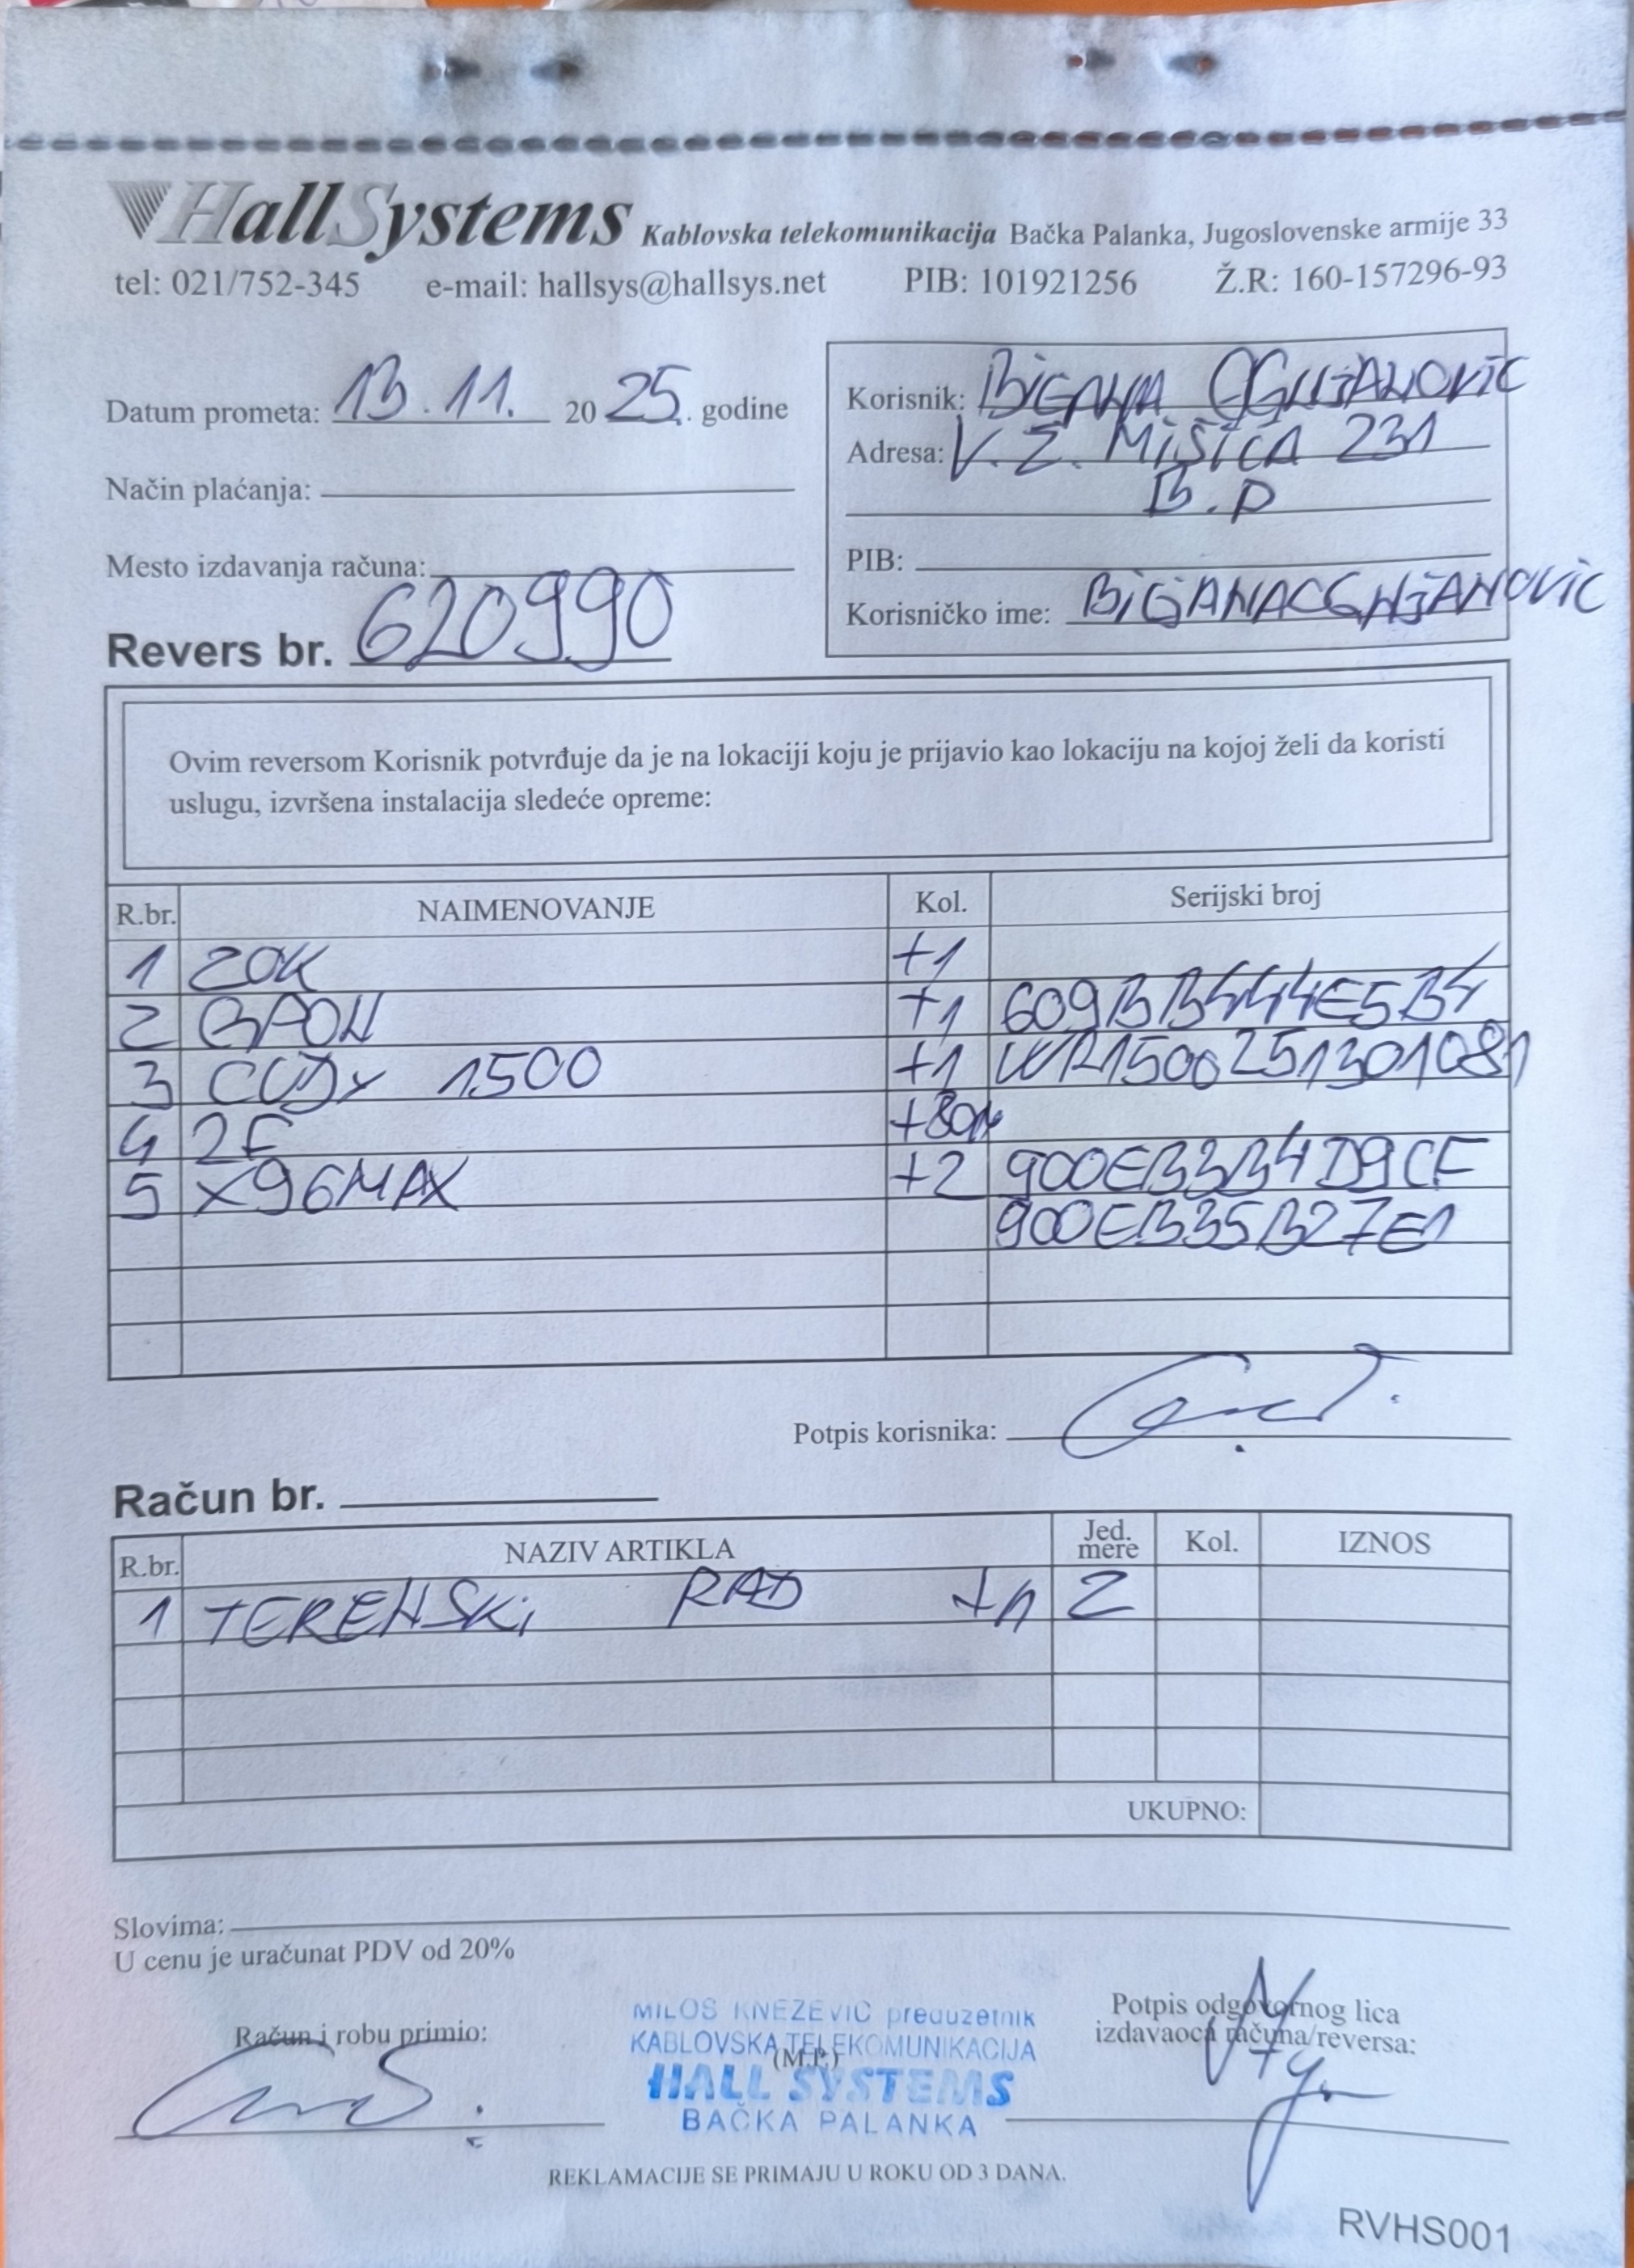 HallSystems Kablovska telekomunikacija Bačka Palanka, Jugoslovenske armije 33
tel: 021/752-345 e-mail: hallsys@hallsys.net PIB: 101921256 Ž.R: 160-157296-93
Datum prometa: 13.11. 20 25. godine
Način plaćanja:
Mesto izdavanja računa:
Revers br. 620990
Korisnik: BiGANA OGNJANOVIC
Adresa: V. Ž. MiŠiCA 231
B.P
PIB:
Korisničko ime: BiGANAOGNJANOVIC
Ovim reversom Korisnik potvrđuje da je na lokaciji koju je prijavio kao lokaciju na kojoj želi da koristi
uslugu, izvršena instalacija sledeće opreme:
R.br. NAIMENOVANJE Kol. Serijski broj
1 ZOK +1
2 GPON +1 609BB444E5B4
3 CUDY 1500 +1 WR1500251301081
4 2F +80m
5 X96MAX +2 900EB3B4D9CF
900EB35B27E1
Potpis korisnika:
Račun br.
R.br. NAZIV ARTIKLA Jed. mere Kol. IZNOS
1 TERENSKi RAD +1 2
UKUPNO:
Slovima:
U cenu je uračunat PDV od 20%
Račun i robu primio:
MILOŠ KNEŽEVIĆ preduzetnik
KABLOVSKA TELEKOMUNIKACIJA
(M.P.)
HALL SYSTEMS
BAČKA PALANKA
Potpis odgovornog lica
izdavaoca računa/reversa:
REKLAMACIJE SE PRIMAJU U ROKU OD 3 DANA.
RVHS001